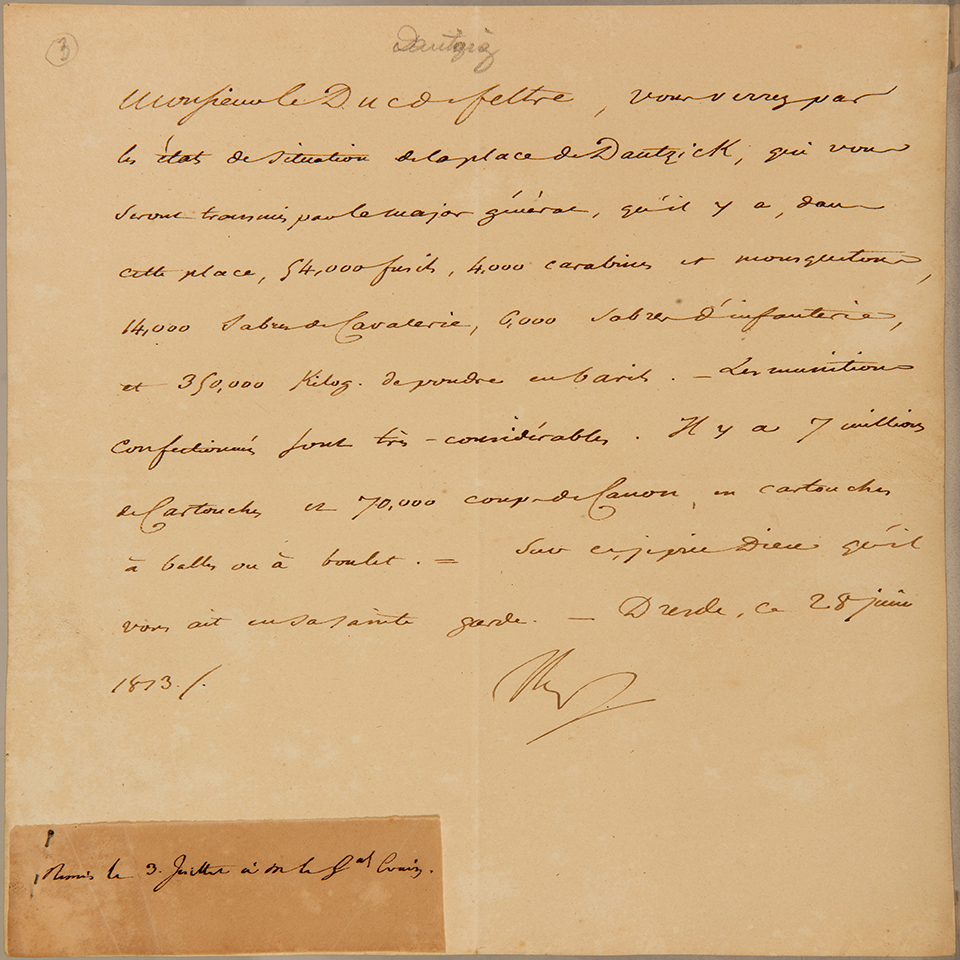 3
Dantzig
Monsieur le Duc de feltre, vous verrez par
les état de situation de la place de Dantzick, qui vous
seront transmis par le major général, qu'il y a, dans
cette place, 54,000 fusils, 4,000 carabines et mousquetons,
14,000 sabres de Cavalerie, 6,000 sabres d'infanterie,
et 350,000 Kilog. de poudre en barils. — Les munitions
confectionnés sont très-considérables. Il y a 7 millions
de Cartouches et 70,000 coups de Canon, en cartouches
à balles ou à boulet. = Sur ce, je prie Dieu qu'il
vous ait en sa sainte garde. — Dresde, ce 28 juin
1813./.
Remis le 3. Juillet à M le Gal